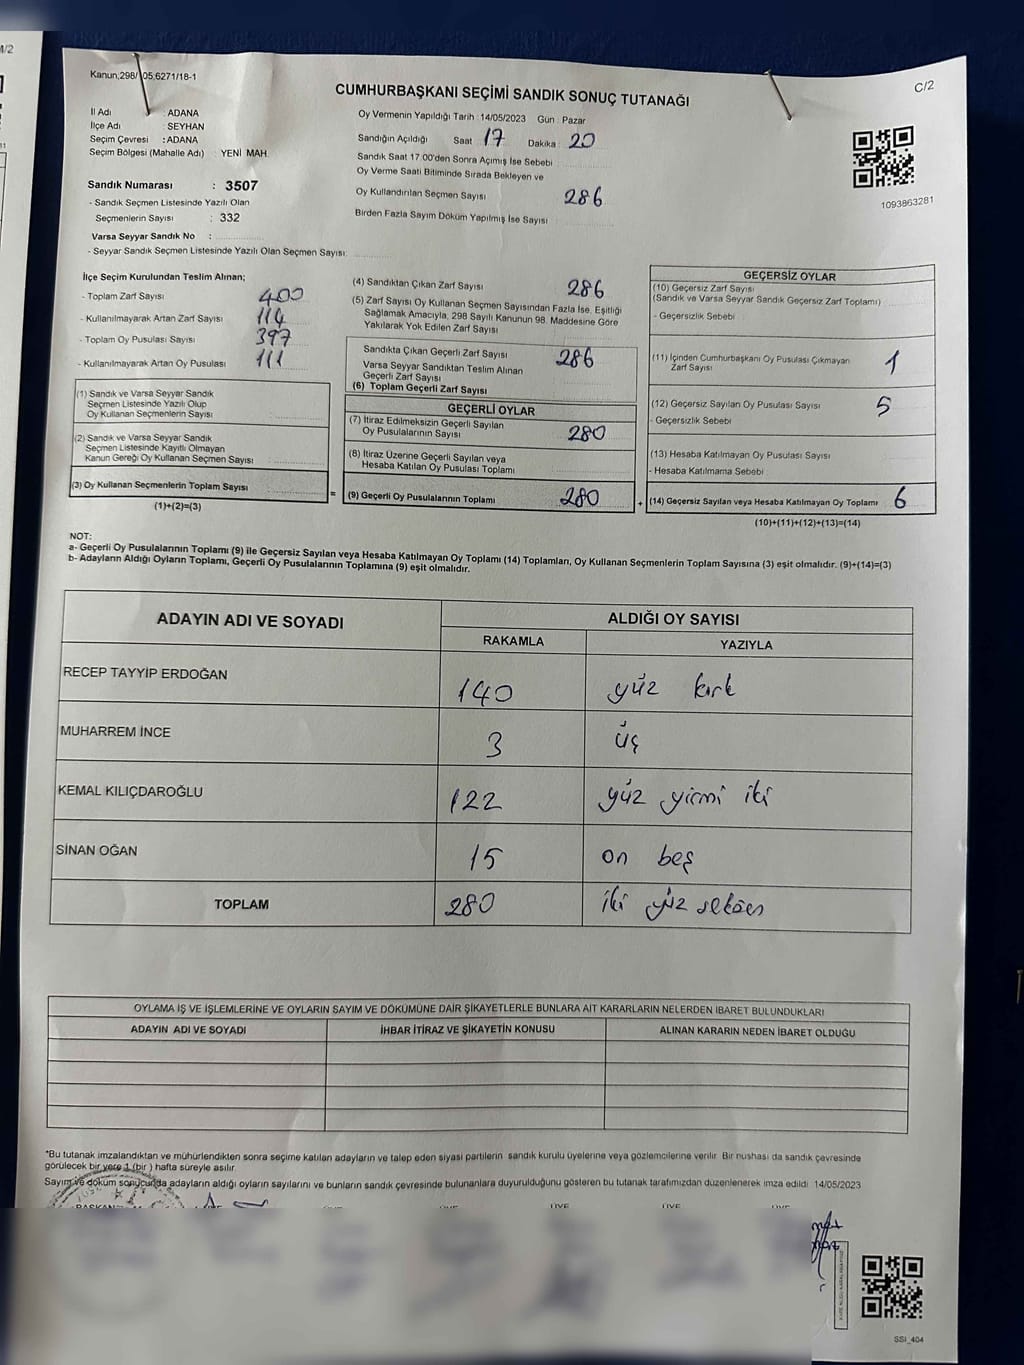 Kanun;298/105;6271/18-1
C/2
CUMHURBAŞKANI SEÇİMİ SANDIK SONUÇ TUTANAĞI
İl Adı : ADANA
İlçe Adı : SEYHAN
Seçim Çevresi : ADANA
Seçim Bölgesi (Mahalle Adı) : YENİ MAH.
Sandık Numarası : 3507
- Sandık Seçmen Listesinde Yazılı Olan
Seçmenlerin Sayısı : 332
Varsa Seyyar Sandık No :
- Seyyar Sandık Seçmen Listesinde Yazılı Olan Seçmen Sayısı:
Oy Vermenin Yapıldığı Tarih : 14/05/2023 Gün : Pazar
Sandığın Açıldığı Saat 17 Dakika : 20
Sandık Saat 17.00'den Sonra Açımış İse Sebebi
Oy Verme Saati Bitiminde Sırada Bekleyen ve
Oy Kullandırılan Seçmen Sayısı 286
Birden Fazla Sayım Döküm Yapılmış İse Sayısı
1093863281
İlçe Seçim Kurulundan Teslim Alınan;
- Toplam Zarf Sayısı 400
- Kullanılmayarak Artan Zarf Sayısı 114
- Toplam Oy Pusulası Sayısı 397
- Kullanılmayarak Artan Oy Pusulası 111
(1) Sandık ve Varsa Seyyar Sandık
Seçmen Listesinde Yazılı Olup
Oy Kullanan Seçmenlerin Sayısı
(2) Sandık ve Varsa Seyyar Sandık
Seçmen Listesinde Kayıtlı Olmayan
Kanun Gereği Oy Kullanan Seçmen Sayısı
(3) Oy Kullanan Seçmenlerin Toplam Sayısı
(1)+(2)=(3)
=
(4) Sandıktan Çıkan Zarf Sayısı 286
(5) Zarf Sayısı Oy Kullanan Seçmen Sayısından Fazla İse, Eşitliği
Sağlamak Amacıyla, 298 Sayılı Kanunun 98. Maddesine Göre
Yakılarak Yok Edilen Zarf Sayısı
Sandıkta Çıkan Geçerli Zarf Sayısı 286
Varsa Seyyar Sandıktan Teslim Alınan
Geçerli Zarf Sayısı
(6) Toplam Geçerli Zarf Sayısı
GEÇERLİ OYLAR
(7) İtiraz Edilmeksizin Geçerli Sayılan
Oy Pusulalarının Sayısı 280
(8) İtiraz Üzerine Geçerli Sayılan veya
Hesaba Katılan Oy Pusulası Toplamı
(9) Geçerli Oy Pusulalarının Toplamı 280
+
GEÇERSİZ OYLAR
(10) Geçersiz Zarf Sayısı
(Sandık ve Varsa Seyyar Sandık Geçersiz Zarf Toplamı)
- Geçersizlik Sebebi
(11) İçinden Cumhurbaşkanı Oy Pusulası Çıkmayan
Zarf Sayısı 1
(12) Geçersiz Sayılan Oy Pusulası Sayısı 5
- Geçersizlik Sebebi
(13) Hesaba Katılmayan Oy Pusulası Sayısı
- Hesaba Katılmama Sebebi
(14) Geçersiz Sayılan veya Hesaba Katılmayan Oy Toplamı 6
(10)+(11)+(12)+(13)=(14)
NOT:
a- Geçerli Oy Pusulalarının Toplamı (9) ile Geçersiz Sayılan veya Hesaba Katılmayan Oy Toplamı (14) Toplamları, Oy Kullanan Seçmenlerin Toplam Sayısına (3) eşit olmalıdır. (9)+(14)=(3)
b- Adayların Aldığı Oyların Toplamı, Geçerli Oy Pusulalarının Toplamına (9) eşit olmalıdır.
ADAYIN ADI VE SOYADI ALDIĞI OY SAYISI
RAKAMLA YAZIYLA
RECEP TAYYİP ERDOĞAN 140 yüz kırk
MUHARREM İNCE 3 üç
KEMAL KILIÇDAROĞLU 122 yüz yirmi iki
SİNAN OĞAN 15 on beş
TOPLAM 280 iki yüz seksen
OYLAMA İŞ VE İŞLEMLERİNE VE OYLARIN SAYIM VE DÖKÜMÜNE DAİR ŞİKAYETLERLE BUNLARA AİT KARARLARIN NELERDEN İBARET BULUNDUKLARI
ADAYIN ADI VE SOYADI İHBAR İTİRAZ VE ŞİKAYETİN KONUSU ALINAN KARARIN NEDEN İBARET OLDUĞU
*Bu tutanak imzalandıktan ve mühürlendikten sonra seçime katılan adayların ve talep eden siyasi partilerin sandık kurulu üyelerine veya gözlemcilerine verilir. Bir nüshası da sandık çevresinde
görülecek bir yere 1 (bir) hafta süreyle asılır.
Sayım ve döküm sonucunda adayların aldığı oyların sayılarını ve bunların sandık çevresinde bulunanlara duyurulduğunu gösteren bu tutanak tarafımızdan düzenlenerek imza edildi 14/05/2023
BAŞKAN ÜYE ÜYE ÜYE ÜYE
SSİ_404